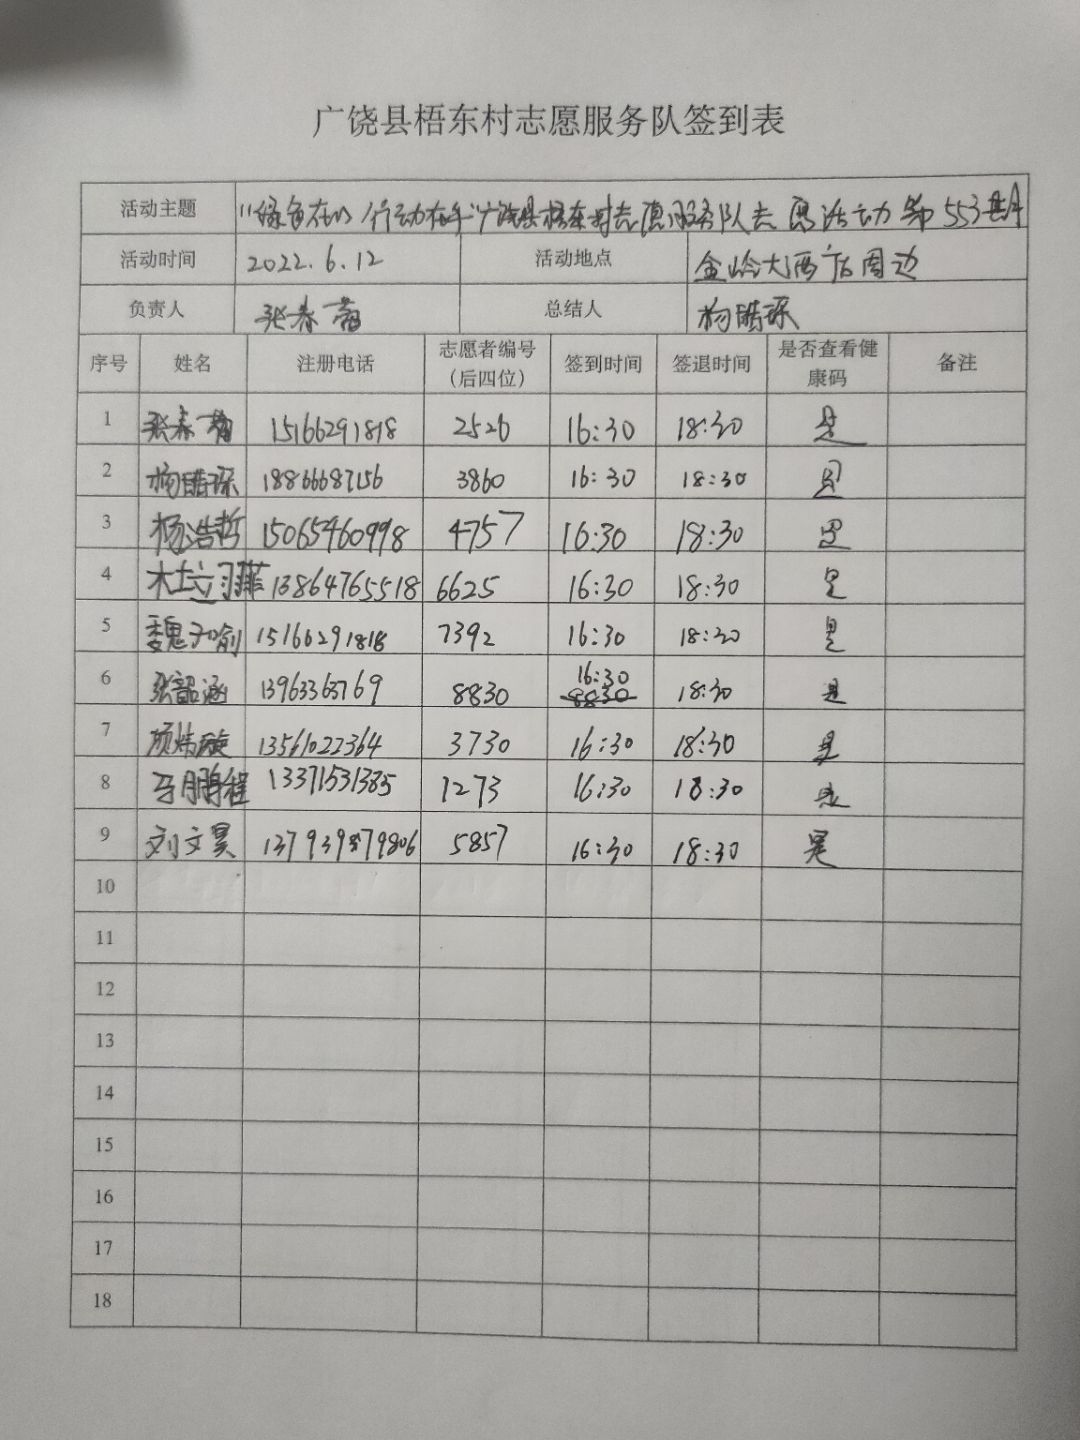 广饶县梧东村志愿服务队签到表
活动主题 "绿色在心 行动在手"广饶县梧东村志愿服务队志愿活动第553期
活动时间 2022.6.12 活动地点 金岭大酒店周边
负责人 张春菊 总结人 杨皓琛
序号 姓名 注册电话 志愿者编号（后四位） 签到时间 签退时间 是否查看健康码 备注
1 张春菊 15166291818 2526 16:30 18:30 是
2 杨皓琛 18866687156 3860 16:30 18:30 是
3 杨浩哲 15065460998 4757 16:30 18:30 是
4 13864765518 6625 16:30 18:30 是
5 魏子喻 15166291818 7392 16:30 18:30 是
6 张韶涵 13963363769 8830 16:30 18:30 是
7 颜炜璇 13561022364 3730 16:30 18:30 是
8 马鹏程 13371531385 1273 16:30 18:30 是
9 刘文昊 5857 16:30 18:30 是
10
11
12
13
14
15
16
17
18